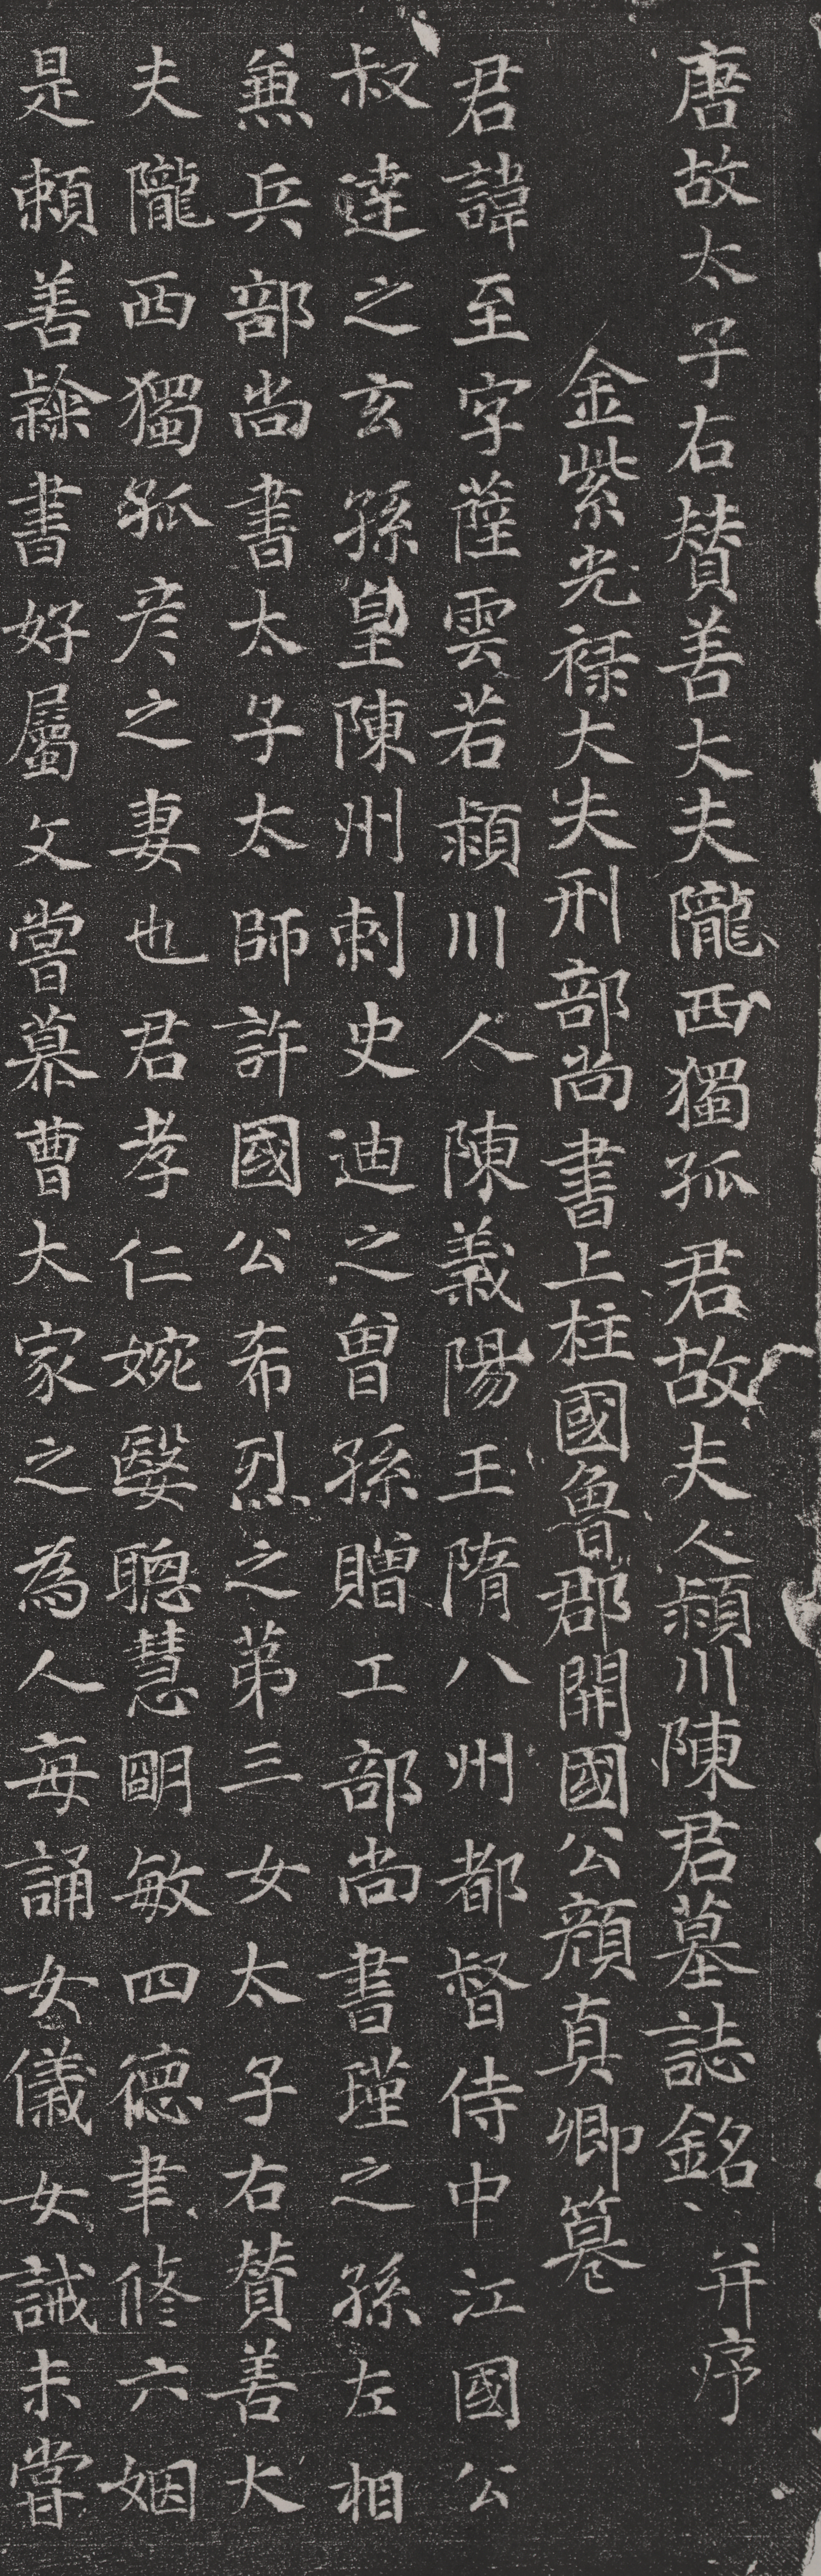 唐故太子右贊善大夫隴西獨孤君故夫人潁川陳君墓誌銘并序
金紫光祿大夫刑部尚書上柱國魯郡開國公顏真卿篹
君諱至字薩雲若潁川人陳義陽王隋八州都督侍中江國公
叔達之玄孫皇陳州刺史迪之曾孫贈工部尚書瑾之孫左相
兼兵部尚書太子太師許國公希烈之第三女太子右贊善大
夫隴西獨孤彥之妻也君孝仁婉嫕聰慧明敏四德聿修六姻
是賴善隸書好屬文嘗慕曹大家之為人每誦女儀女誡未嘗